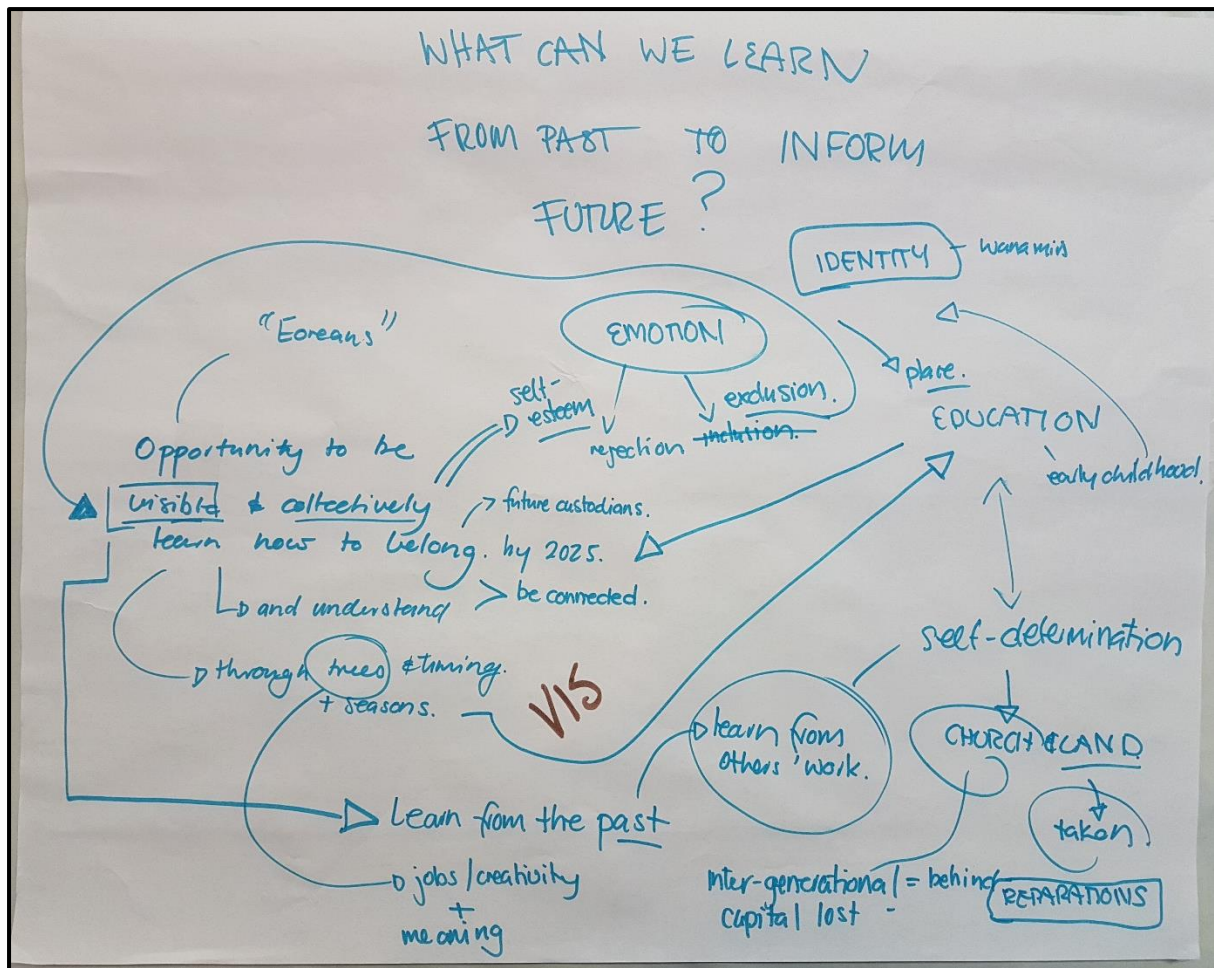 WHAT CAN WE LEARN
FROM PAST TO INFORM
FUTURE ?
IDENTITY -
"Eoreans"
EMOTION
place.
self-
esteem
exclusion.
rejection inclusion.
EDUCATION
early childhood.
Opportunity to be
visible & collectively
learn how to belong. by 2025.
future custodians.
be connected.
and understand
through trees & timing.
+ seasons.
VIS
self-determination
learn from
others' work.
CHURCH & LAND
taken
REPARATIONS
Learn from the past
jobs/creativity
+
meaning
Inter-generational = behind
capital lost -